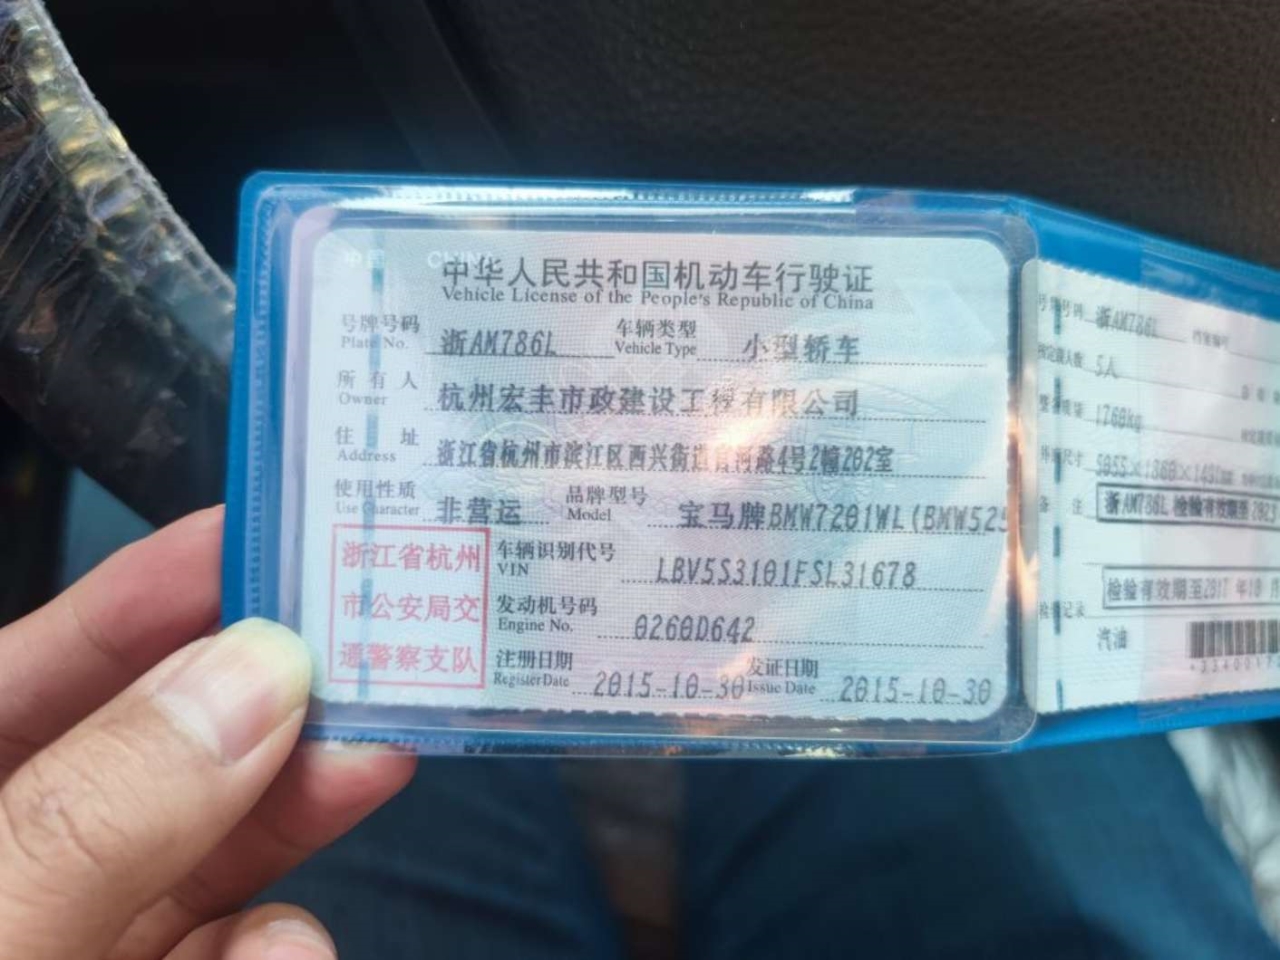 中华人民共和国机动车行驶证
Vehicle License of the People's Republic of China
号牌号码 浙AM786L 车辆类型 小型轿车
Plate No. Vehicle Type
所有人 杭州宏丰市政建设工程有限公司
Owner
住址 浙江省杭州市滨江区西兴街道官河路4号2幢202室
Address
使用性质 非营运 品牌型号 宝马牌BMW7201WL(BMW525
Use Character Model
浙江省杭州
市公安局交
通警察支队
车辆识别代号 LBV5S3101FSL31678
VIN
发动机号码 0260D642
Engine No.
注册日期 2015-10-30 发证日期 2015-10-30
Register Date Issue Date
号牌号码 浙AM786L 档案编号
核定载人数 5人
整备质量 1760kg
外廓尺寸
备注 浙AM786L 检验有效期至2023
检验有效期至2017年10月
检验记录
汽油